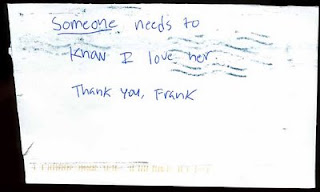 Someone needs to
know I love her.
Thank you, Frank